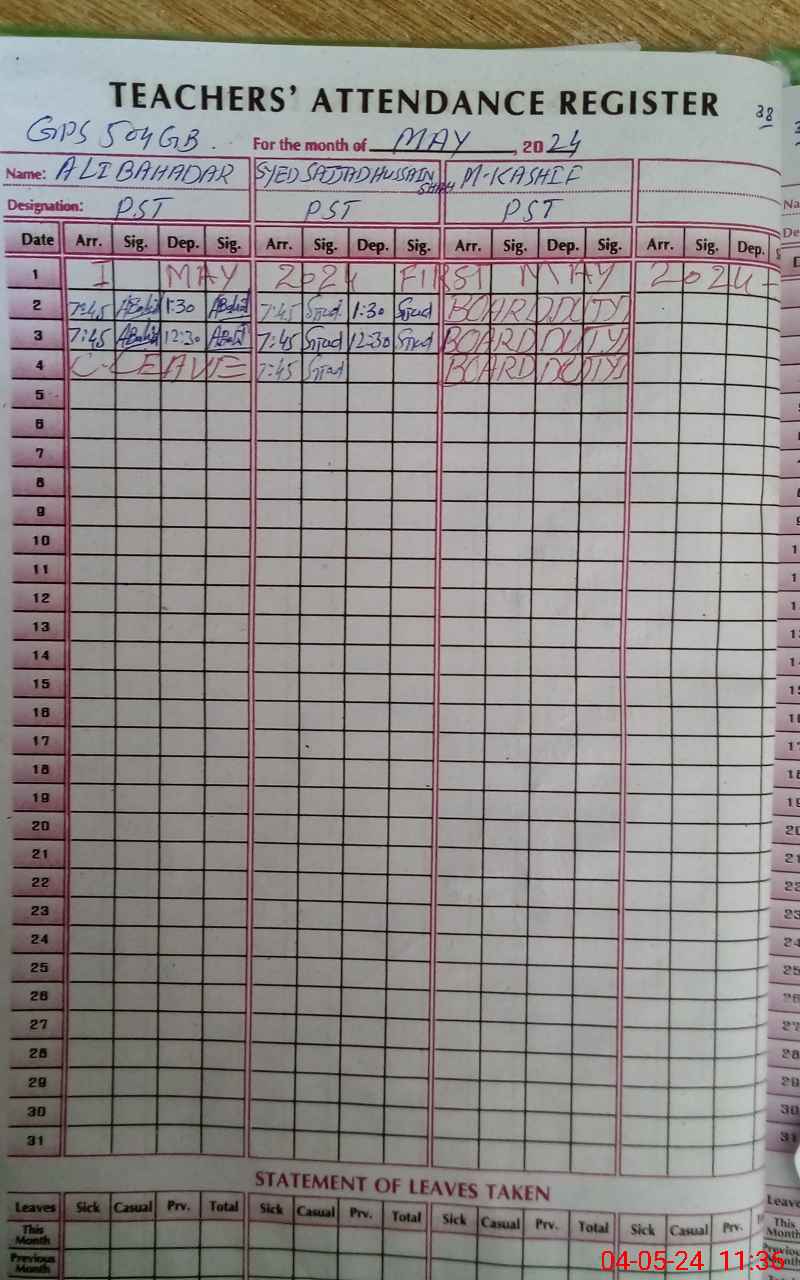 TEACHERS' ATTENDANCE REGISTER
38
GPS 504 GB. For the month of MAY, 2024
Name: ALI BAHADAR SYED SAJJAD HUSSAIN SHAH M-KASHIF
Designation: PST PST PST
Date Arr. Sig. Dep. Sig. Arr. Sig. Dep. Sig. Arr. Sig. Dep. Sig. Arr. Sig. Dep.
1 I MAY 2024 FIRST MAY 2024-
2 7:45 1:30 7:45 Sjjad 1:30 Sjjad BOARD DUTY
3 7:45 12:30 7:45 Sjjad 12:30 Sjjad BOARD DUTY
4 C-LEAVE 7:45 Sjjad BOARD DUTY
5
6
7
8
9
10
11
12
13
14
15
16
17
18
19
20
21
22
23
24
25
26
27
28
29
30
31
STATEMENT OF LEAVES TAKEN
Leaves Sick Casual Prv. Total Sick Casual Prv. Total Sick Casual Prv. Total Sick Casual Prv.
This Month
Previous Month
04-05-24 11:36